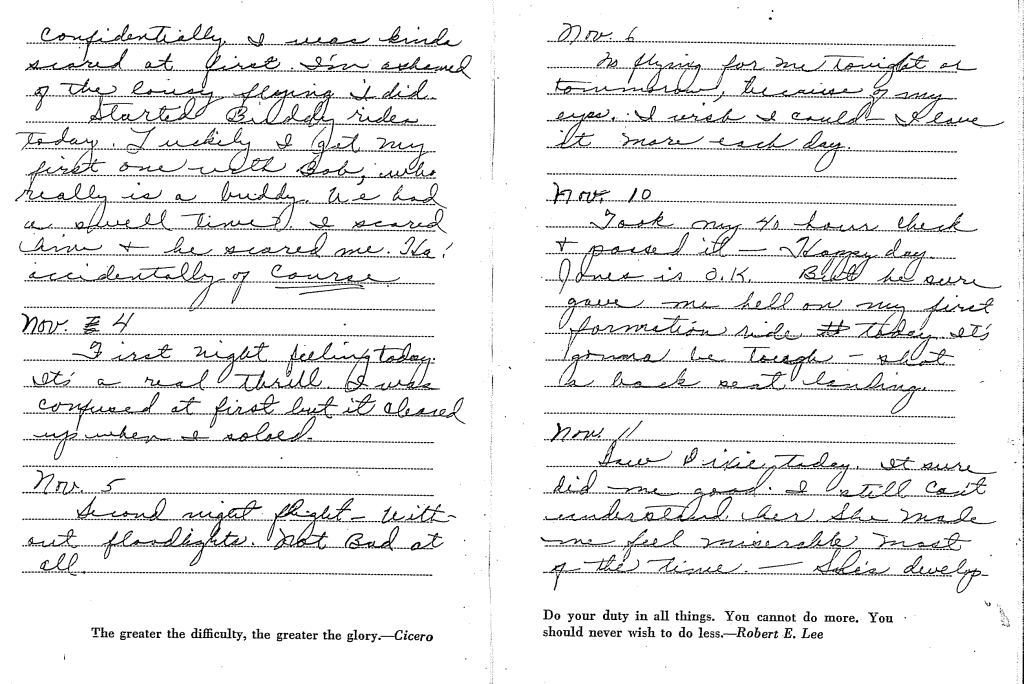 Confidentially I was kinda
scared at first. I'm ashamed
of the lousy flying I did.
Started Buddy rides
today. Luckily I got my
first one with Bob, who
really is a buddy. We had
a swell time. I scared
him & he scared me. Ha!
accidentally of course
Nov. 4
First night feeling today.
It's a real thrill. I was
confused at first but it cleared
up when I soloed.
Nov. 5
Second night flight - With-
out floodlights. Not Bad at
all.
The greater the difficulty, the greater the glory.—Cicero
Nov. 6
No flying for me tonight or
tommorow, because of my
eyes. I wish I could - I love
it more each day.
Nov. 10
Took my 40 hour check
& passed it - Happy day
Jones is O.K. But he sure
gave me hell on my first
formation ride today. It's
gonna be tough - shot
a back seat landing.
Nov. 11
Saw Dixie today. It sure
did me good. I still can't
understand her She made
me feel miserable most
of the time. - She's develop-
Do your duty in all things. You cannot do more. You
should never wish to do less.—Robert E. Lee